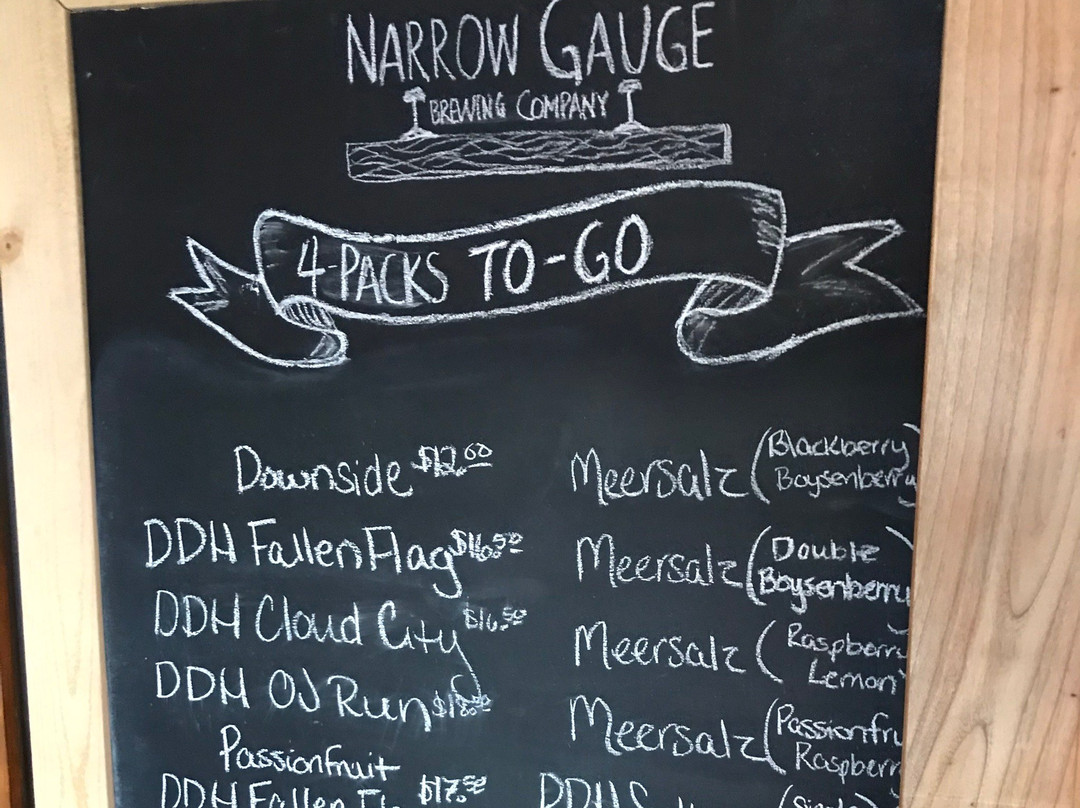 NARROW GAUGE
BREWING COMPANY
4-PACKS TO-GO
Downside $12.00
DDH Fallen Flag $16.50
DDH Cloud City $16.50
DDH OJ Run
Passionfruit
DDH Fallen $17.50
Meersalz (Blackberry
Boysenberry
Meersalz (Double
Boysenberry)
Meersalz (Raspberry
Lemon
Meersalz (Passionfru
Raspberr
DDH